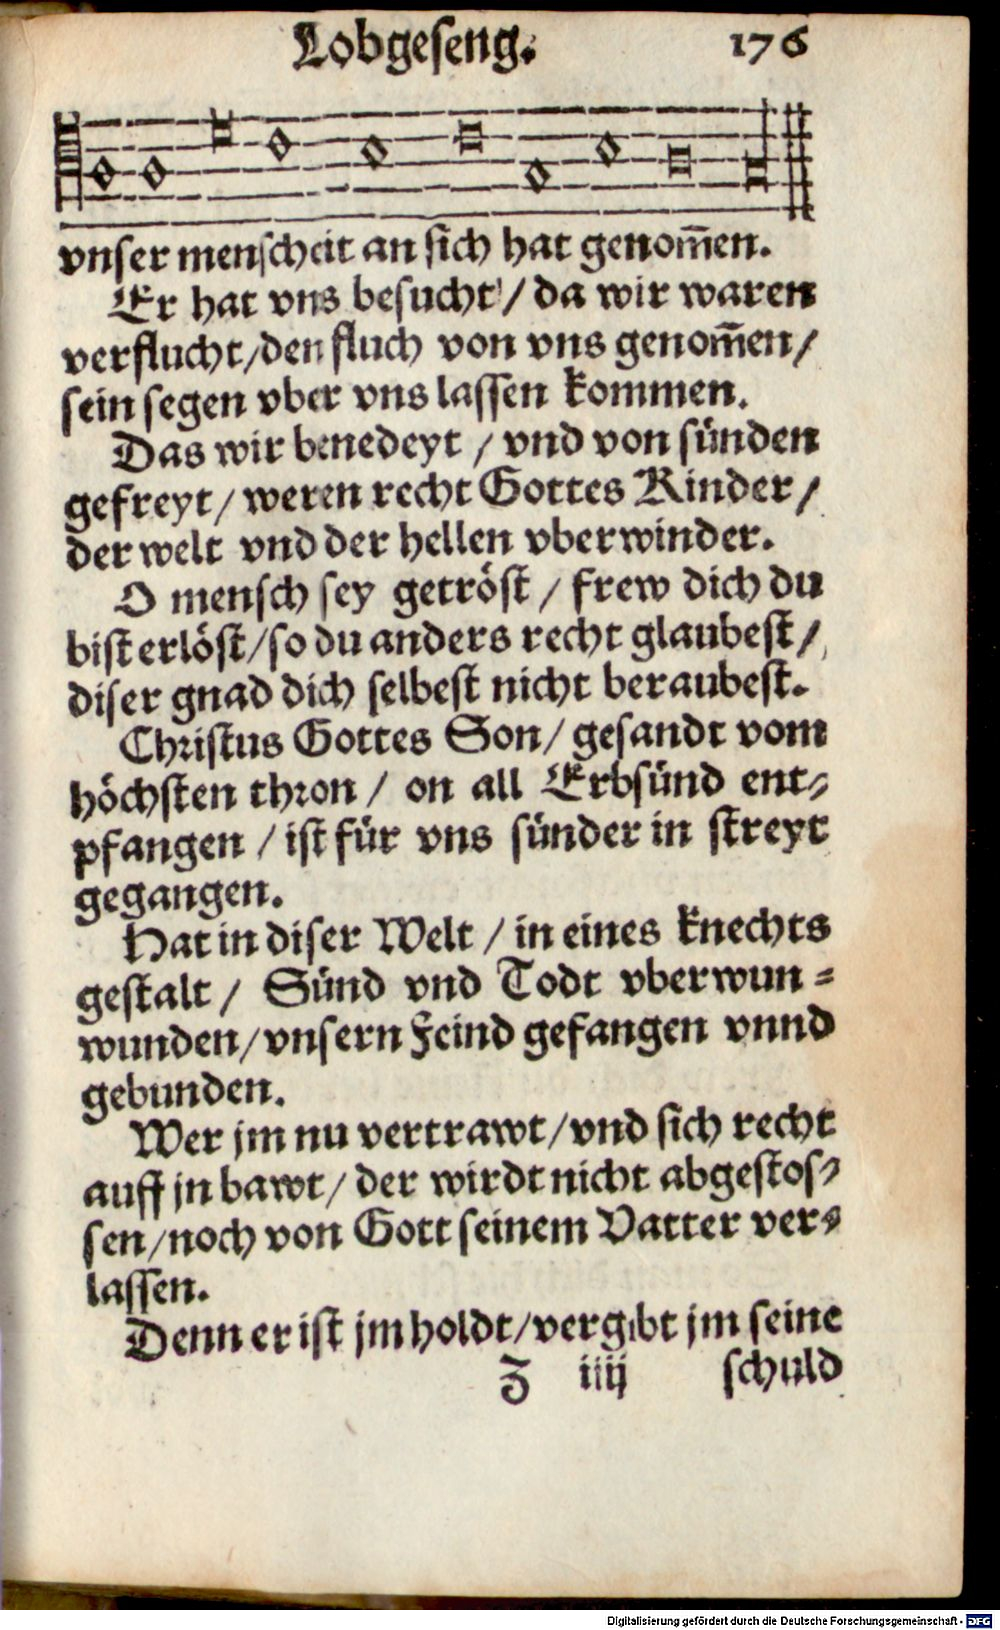 Lobgeseng. 176
vnser menscheit an sich hat genom̃en.
Er hat vns besucht / da wir waren
verflucht / den fluch von vns genom̃en /
sein segen vber vns lassen kommen.
Das wir benedeyt / vnd von sünden
gefreyt / weren recht Gottes Kinder /
der welt vnd der hellen vberwinder.
O mensch sey getröst / frew dich du
bist erlöst / so du anders recht glaubest /
diser gnad dich selbest nicht beraubest.
Christus Gottes Son / gesandt vom
höchsten thron / on all Erbsünd ent-
pfangen / ist für vns sünder in streyt
gegangen.
Hat in diser Welt / in eines knechts
gestalt / Sünd vnd Todt vberwun-
wunden / vnsern Feind gefangen vnnd
gebunden.
Wer jm nu vertrawt / vnd sich recht
auff jn bawt / der wirdt nicht abgestos-
sen / noch von Gott seinem Vatter ver-
lassen.
Denn er ist jm holdt / vergibt jm seine
Z iiij schuld
Digitalisierung gefördert durch die Deutsche Forschungsgemeinschaft - DFG